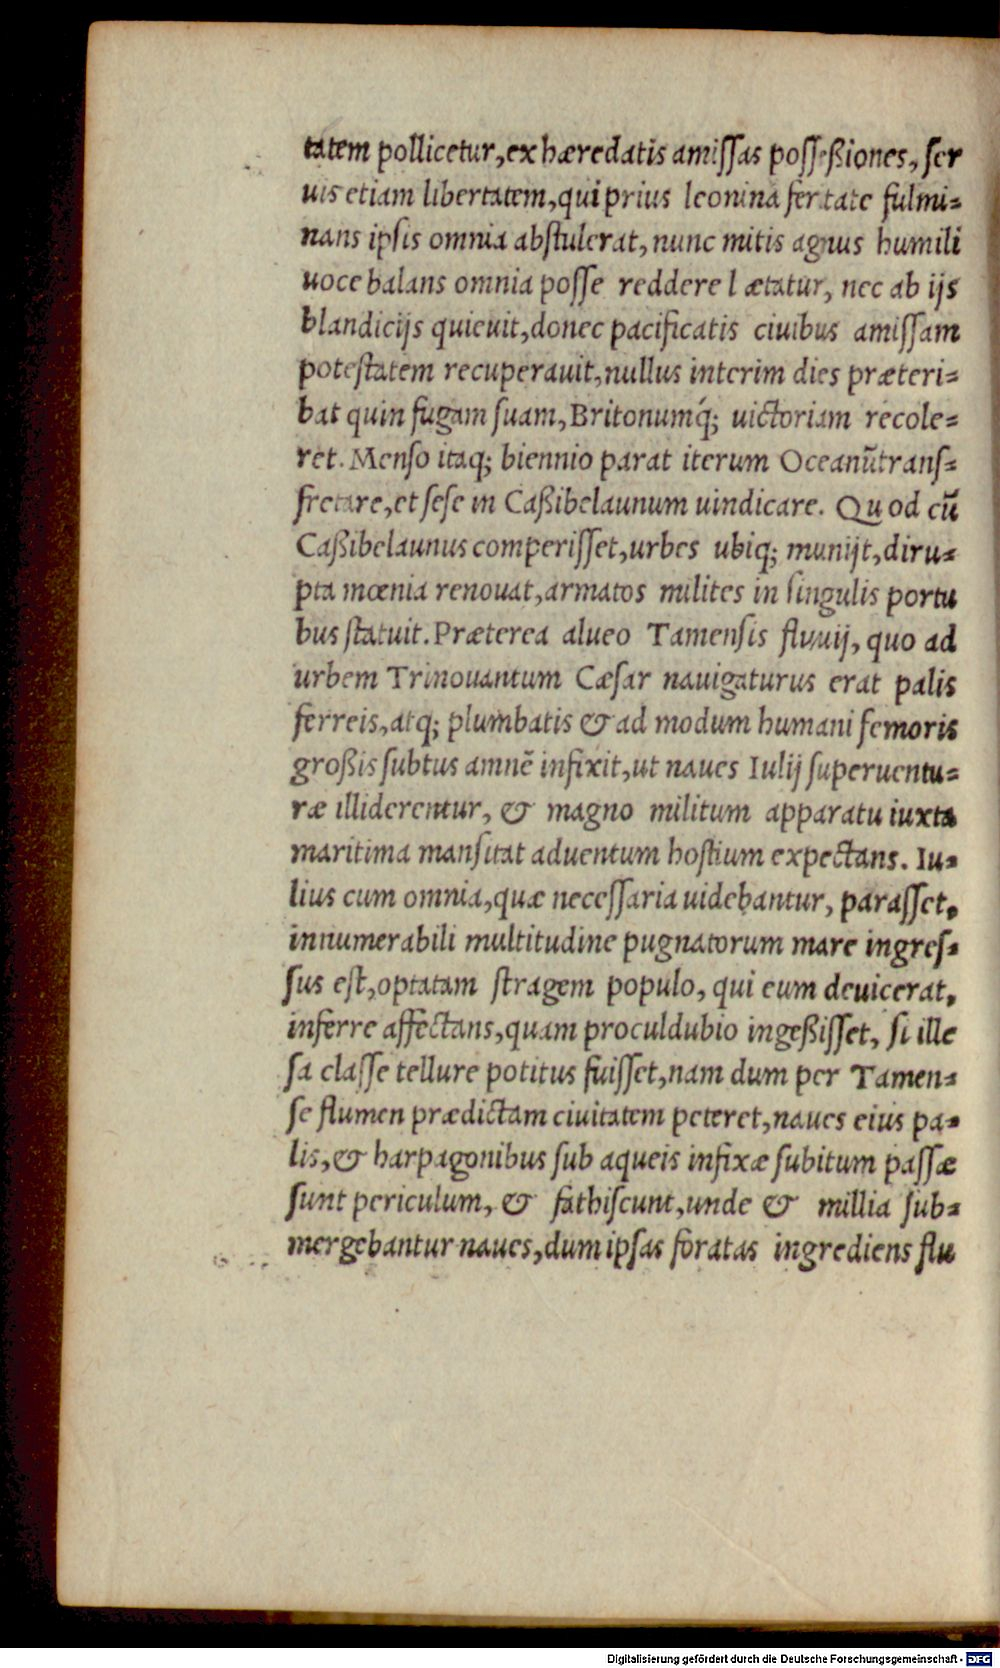 tatem pollicetur, exhæredatis amissas possessiones, ser
uis etiam libertatem, qui prius leonina feritate fulmi-
nans ipsis omnia abstulerat, nunc mitis agnus humili
uoce balans omnia posse reddere lætatur, nec ab ijs
blandicijs quieuit, donec pacificatis ciuibus amissam
potestatem recuperauit, nullus interim dies præteri-
bat quin fugam suam, Britonumq́; uictoriam recole-
ret. Menso itaq; biennio parat iterum Oceanũ trans-
fretare, et sese in Caßibelaunum uindicare. Quod cũ
Caßibelaunus comperisset, urbes ubiq; munijt, diru-
pta mœnia renouat, armatos milites in singulis portu
bus statuit. Præterea alueo Tamensis fluuij, quo ad
urbem Trinouantum Cæsar nauigaturus erat palis
ferreis, atq; plumbatis & ad modum humani femoris
großis subtus amnẽ infixit, ut naues Iulij superuentu-
ræ illiderentur, & magno militum apparatu iuxta
maritima mansitat aduentum hostium expectans. Iu-
lius cum omnia, quæ necessaria uidebantur, parasset,
innumerabili multitudine pugnatorum mare ingres-
sus est, optatam stragem populo, qui eum deuicerat,
inferre affectans, quam proculdubio ingeßisset, si ille
sa classe tellure potitus fuisset, nam dum per Tamen-
se flumen prædictam ciuitatem peteret, naues eius pa-
lis, & harpagonibus sub aqueis infixæ subitum passæ
sunt periculum, & fathiscunt, unde & millia sub-
mergebantur naues, dum ipsas foratas ingrediens flu
Digitalisierung gefördert durch die Deutsche Forschungsgemeinschaft - DFG